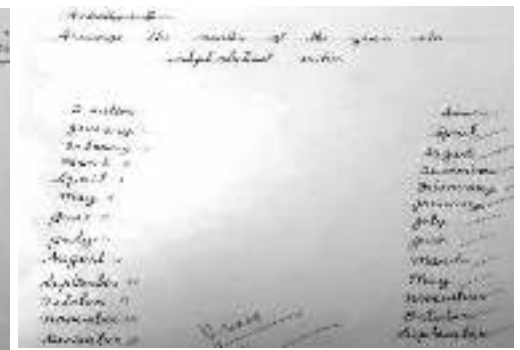 Arrange the months of the year into
alphabetical order
January
February
March
April
May
June
July
August
September
October
November
December
April
August
December
February
January
July
June
March
May
November
October
September